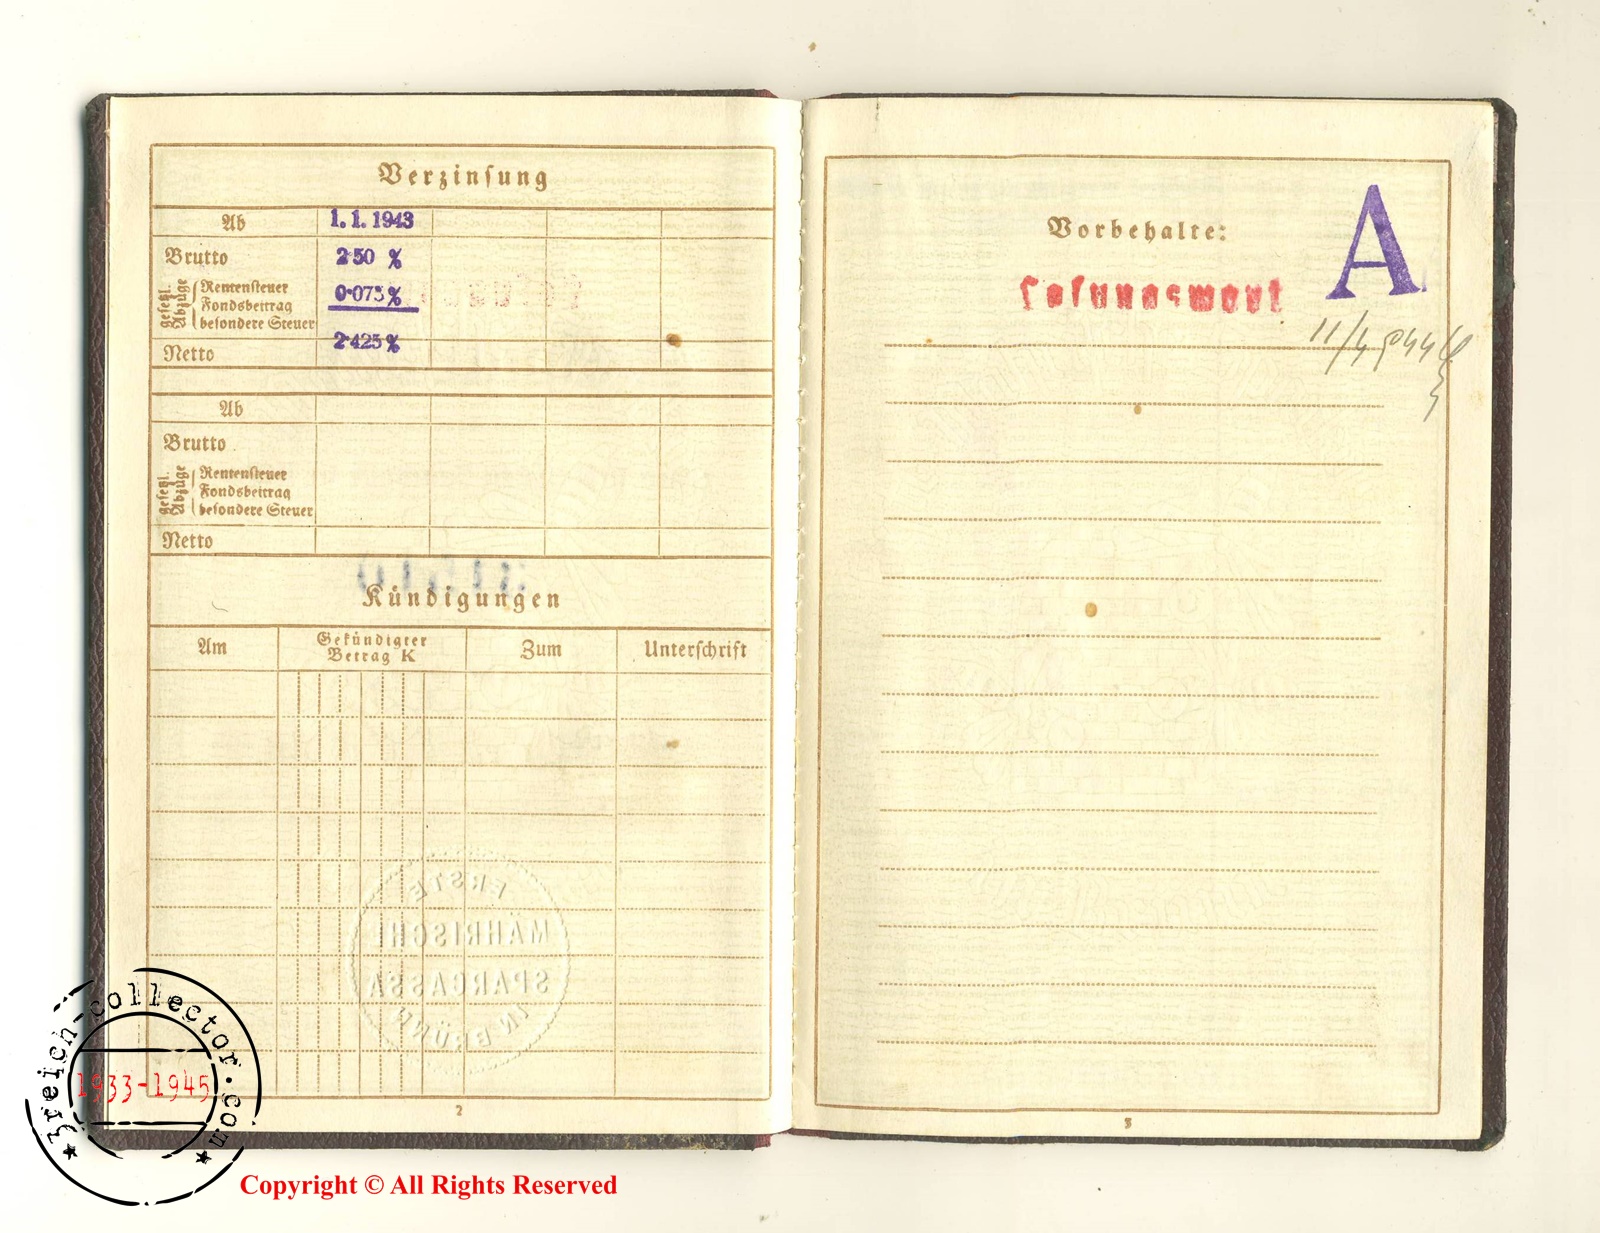 Verzinsung
Ab 1. 1. 1943
Brutto 2·50 %
gesetzl. Abzüge
Rentensteuer
Fondsbeitrag 0·075%
besondere Steuer
Netto 2·425%
Ab
Brutto
gesetzl. Abzüge
Rentensteuer
Fondsbeitrag
besondere Steuer
Netto
Kündigungen
Am Gekündigter Betrag K Zum Unterschrift
ERSTE
MÄHRISCHE
SPARCASSA
IN BRÜNN
2
Vorbehalte:
A
Losungswort
11/4
3
3reich-collector.com
1933-1945
Copyright © All Rights Reserved